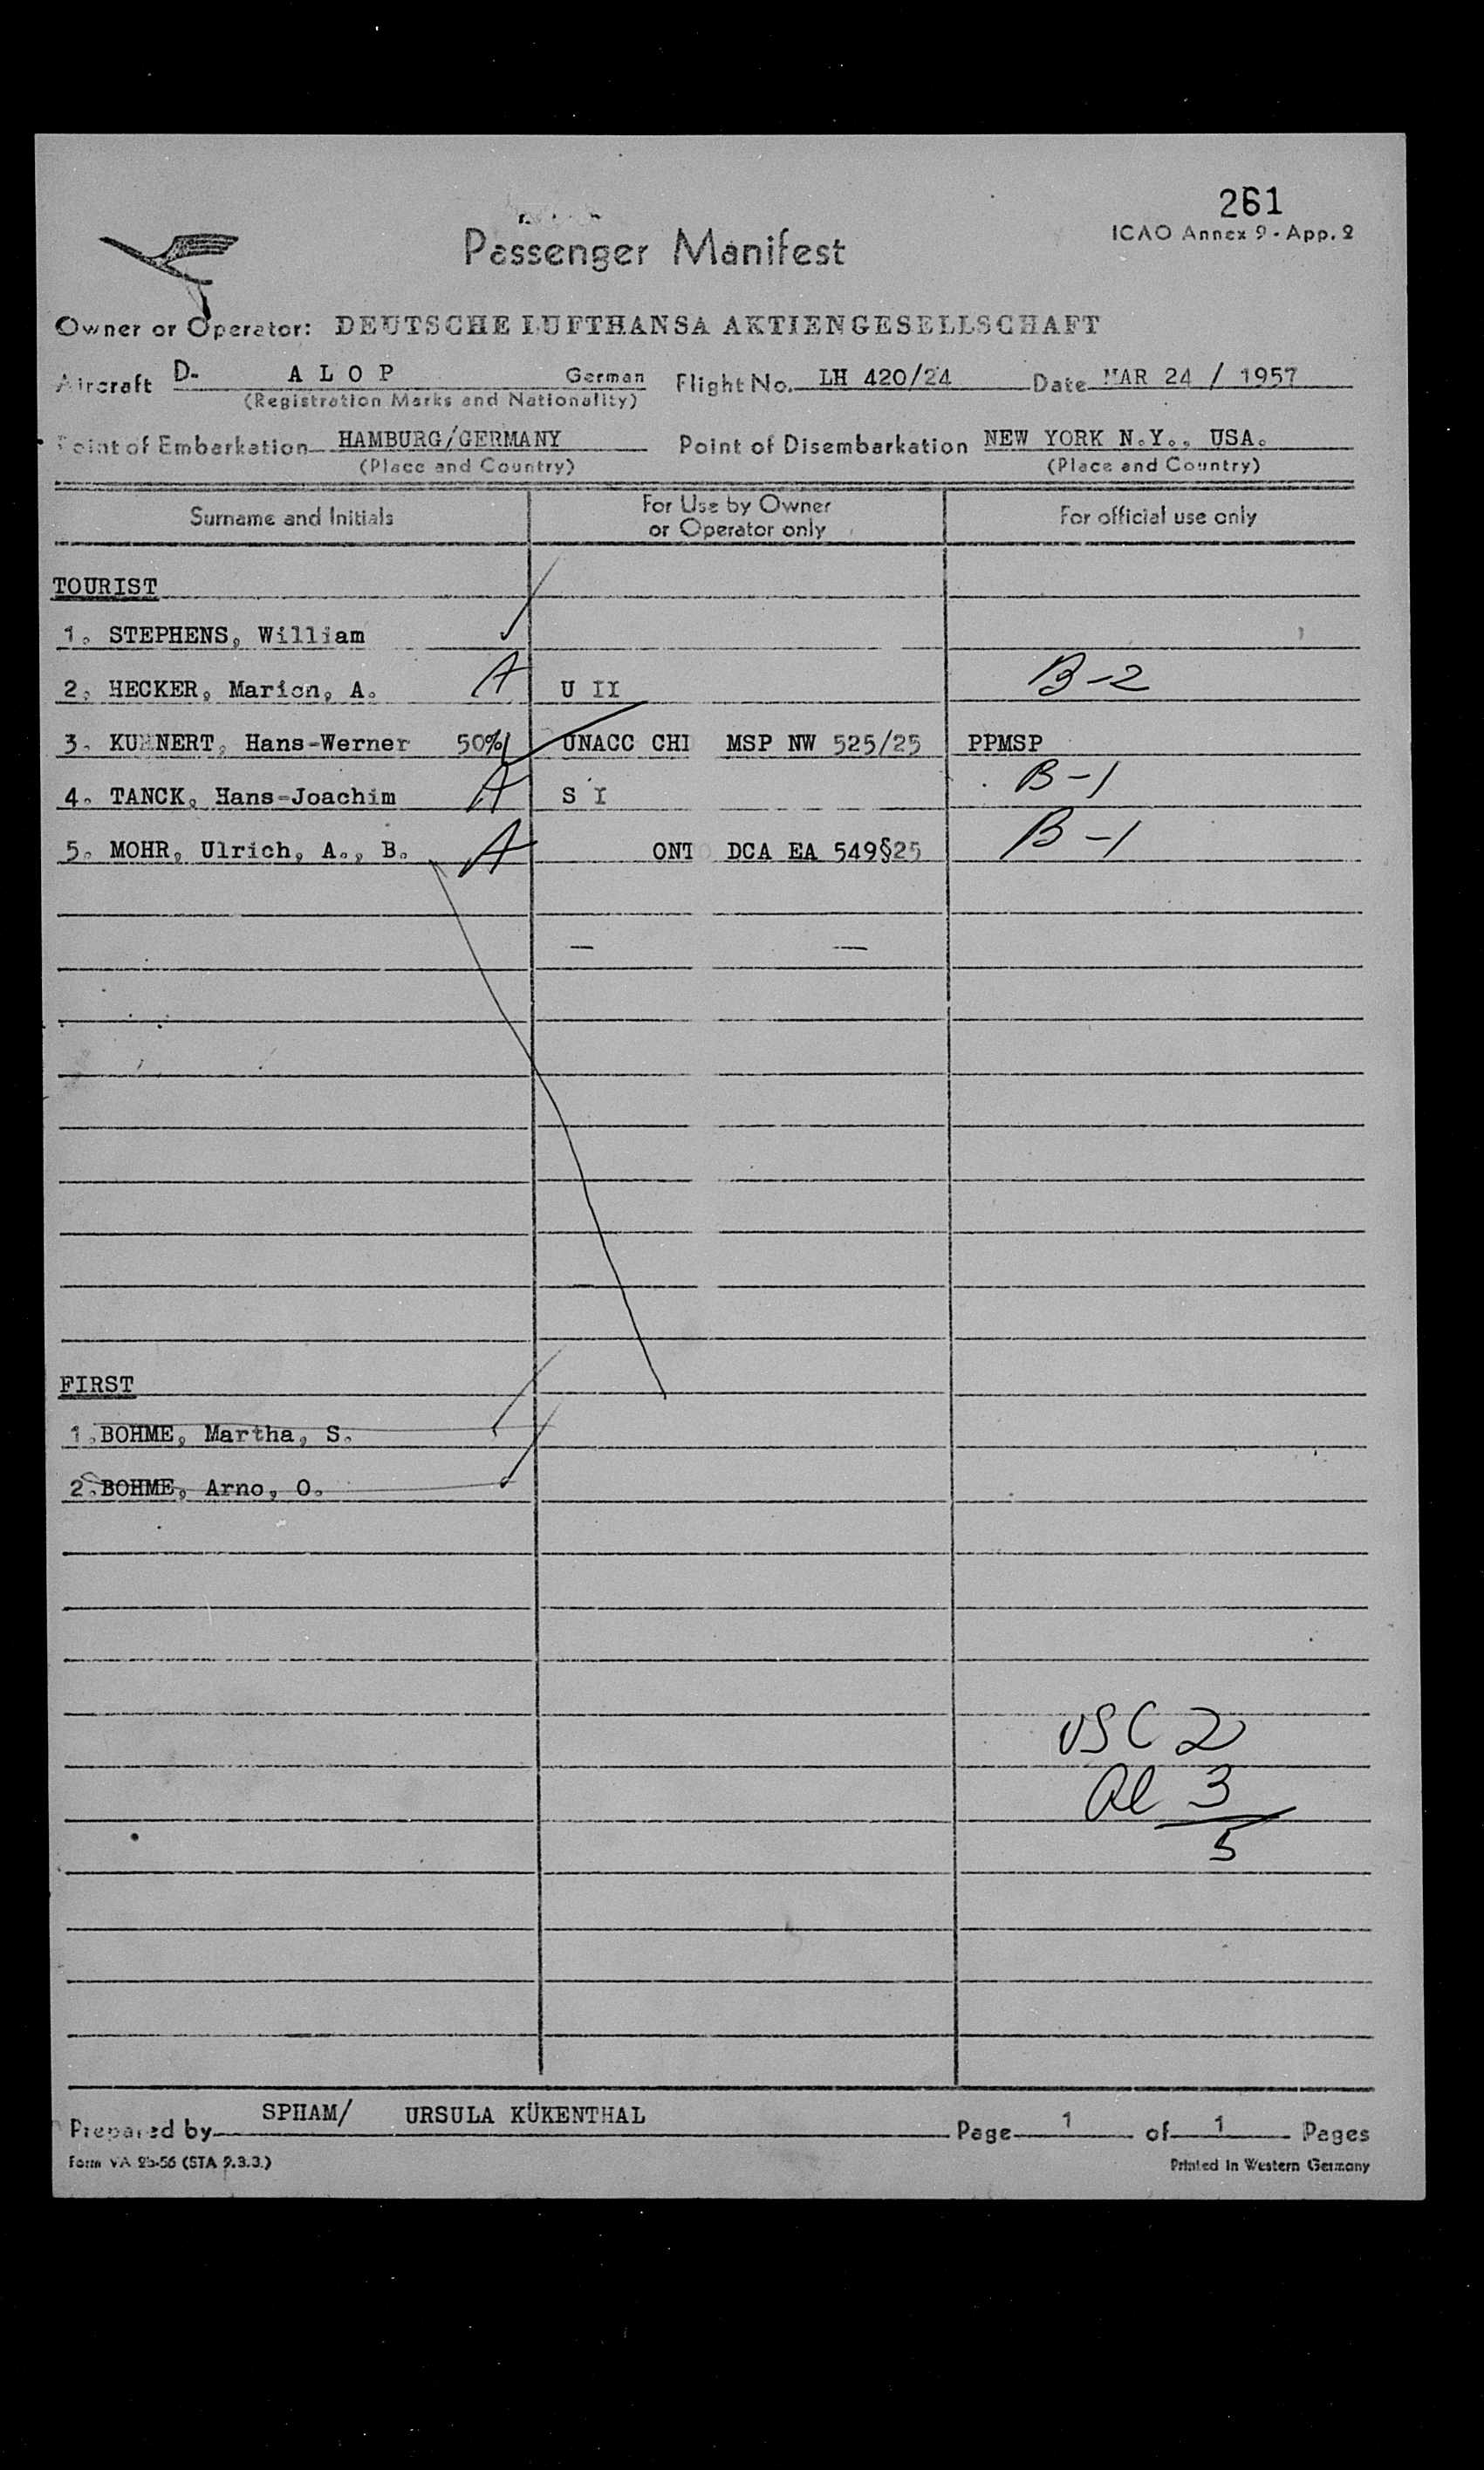 261
ICAO Annex 9 - App. 2
Passenger Manifest
Owner or Operator: DEUTSCHE LUFTHANSA AKTIENGESELLSCHAFT
Aircraft D- A L O P German Flight No. LH 420/24 Date MAR 24 / 1957
(Registration Marks and Nationality)
Point of Embarkation HAMBURG/GERMANY Point of Disembarkation NEW YORK N.Y., USA.
(Place and Country) (Place and Country)
Surname and Initials For Use by Owner or Operator only For official use only
TOURIST
1. STEPHENS, William
2. HECKER, Marion, A. A U II B-2
3. KUHNERT, Hans-Werner 50% UNACC CHI MSP NW 525/25 PPMSP
4. TANCK, Hans-Joachim A S I B-1
5. MOHR, Ulrich, A., B. A ONT DCA EA 549§25 B-1
FIRST
1. BOHME, Martha, S.
2. BOHME, Arno, O.
USC 2
Al 3
5
Prepared by SPHAM/ URSULA KÜKENTHAL Page 1 of 1 Pages
Form VA 2b-56 (STA 9.3.3.) Printed in Western Germany